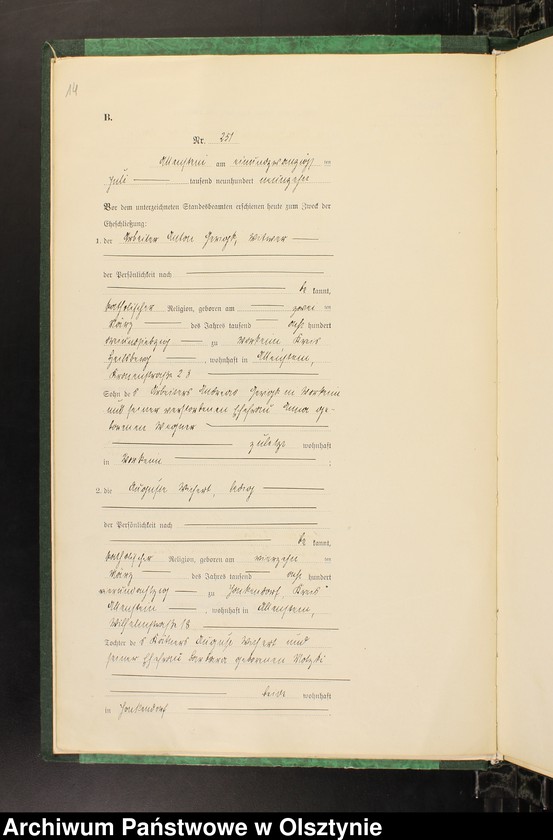 14
B.
Nr. 251
Allenstein am einundzwanzigsten
Juli tausend neunhundert neunzehn
Vor dem unterzeichneten Standesbeamten erschienen heute zum Zweck der
Eheschließung:
1. der Arbeiter Anton Gerigk, Witwer
der Persönlichkeit nach
be kannt,
katholischer Religion, geboren am
März des Jahres tausend acht hundert
zu Kreis
Heilsberg, wohnhaft in Allenstein,
Kronenstraße
Sohn des Arbeiters Andreas Gerigk in
und seiner verstorbenen Ehefrau Anna ge-
borenen Wagner
zuletzt wohnhaft
in ;
2. die Auguste Wichert, ledig
der Persönlichkeit nach
be kannt,
katholischer Religion, geboren am vierzehn ten
März des Jahres tausend acht hundert
vierundachtzig zu Jonkendorf, Kreis
Allenstein, wohnhaft in Allenstein,
Wilhelmstraße 18
Tochter des August Wichert und
seiner Ehefrau Barbara geborenen
beide wohnhaft
in Jonkendorf
Archiwum Państwowe w Olsztynie